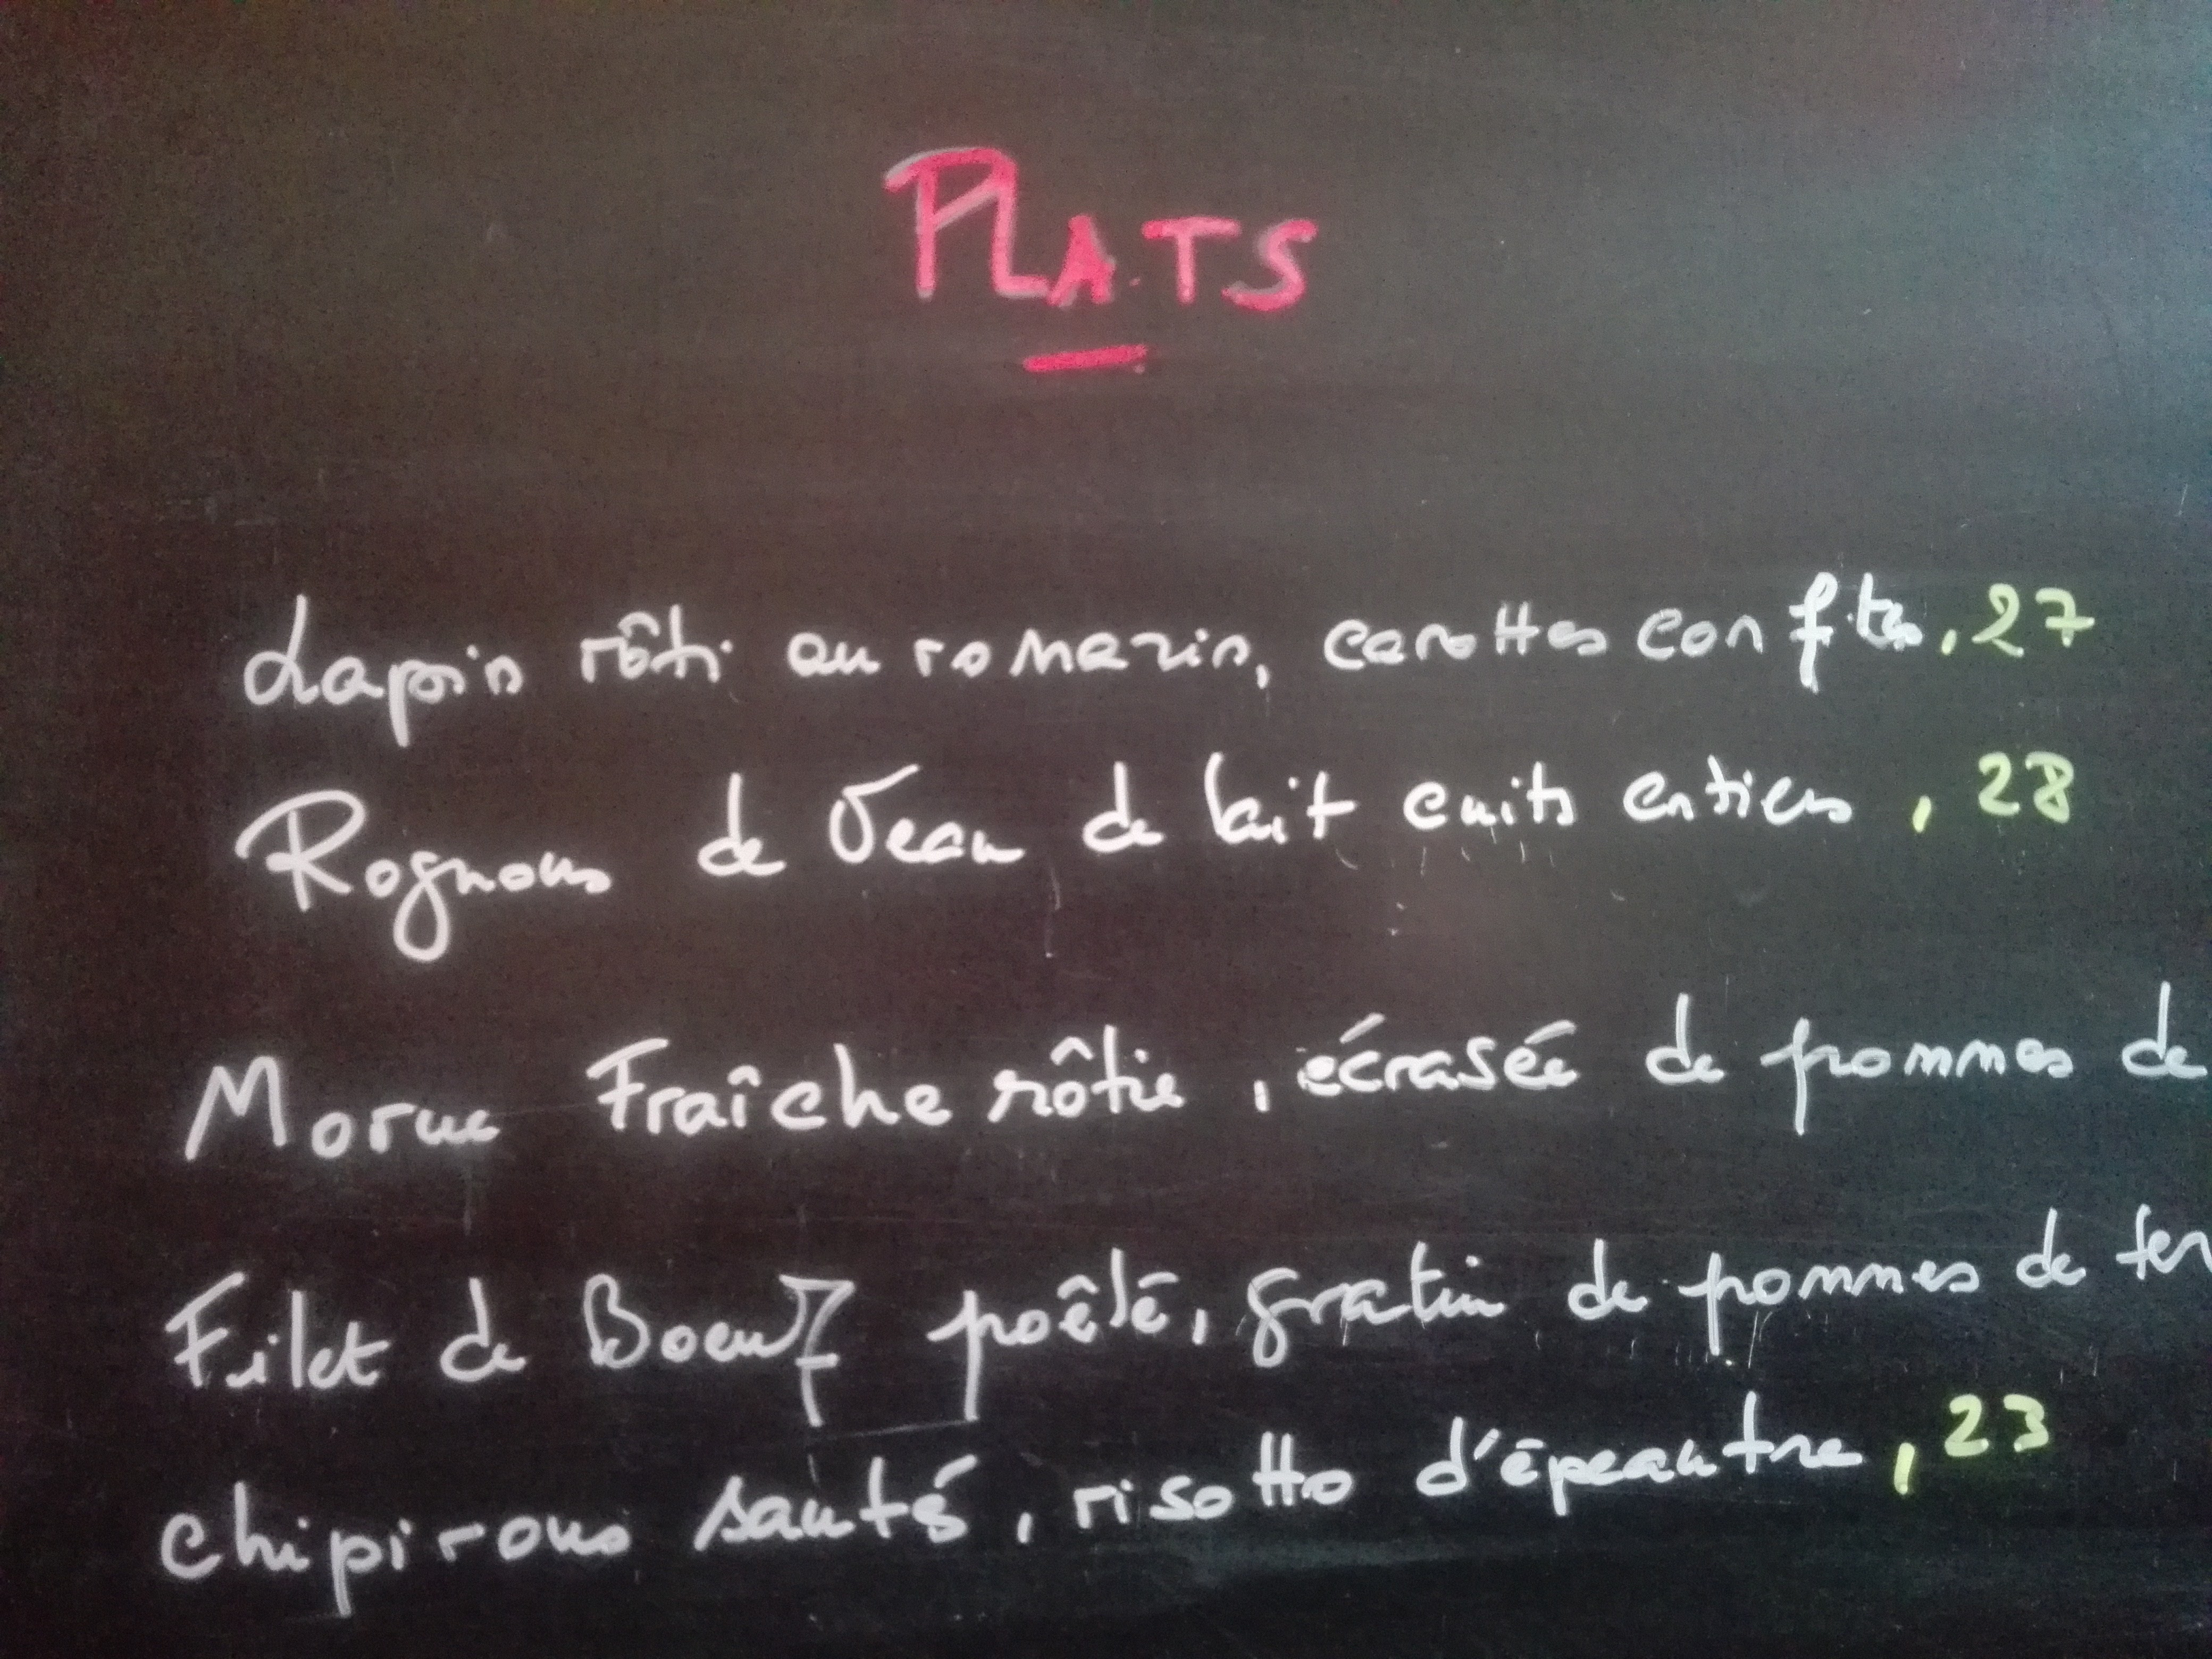 PLATS
Lapin rôti au romarin, carottes confites, 27
Rognons de Veau de lait cuits entiers, 28
Morue Fraîche rôtie, écrasée de pommes de
Filet de Boeuf poêlé, gratin de pommes de ter
Chipirons sautés, risotto d'épeautre, 23